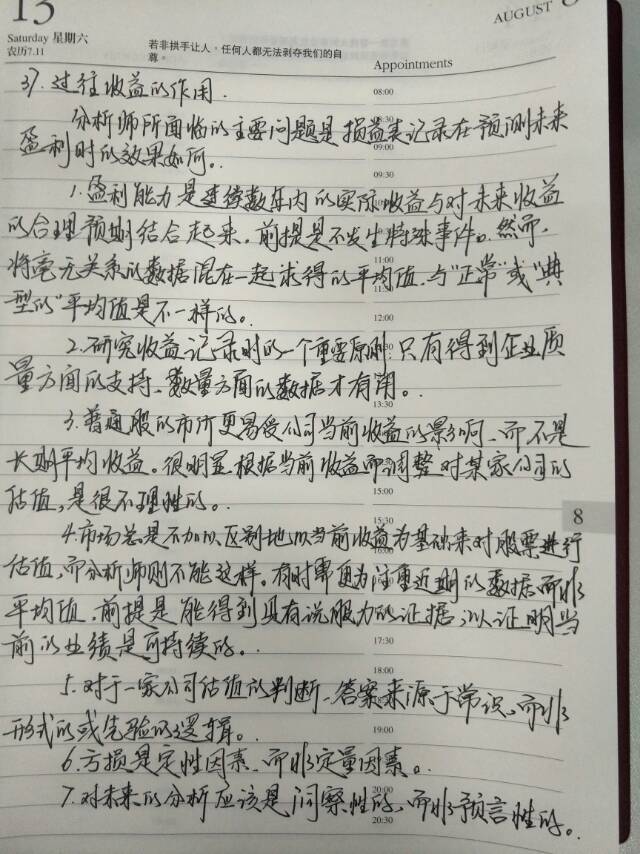 13
AUGUST 8
Saturday 星期六
农历7.11
若非拱手让人，任何人都无法剥夺我们的自
尊。
Appointments
37. 过往收益的作用.
08:00
分析师所面临的主要问题是损益表记录在预测未来
08:30
盈利时的效果如何。
09:00
09:30
1.盈利能力是连续数年内的实际收益与对未来收益
的合理预期结合起来，前提是不发生特殊事件。然而，
将毫无关系的数据混在一起求得的平均值，与“正常”或“典
11:00
型的”平均值是不一样的。
11:30
12:00
2.研究收益记录时的一个重要原则：只有得到企业质
量方面的支持、数量方面的数据才有用。
13:30
3.普通股的市价更易受公司当前收益的影响、而不是
长期平均收益。很明显根据当前收益而调整对某家公司的
估值，是很不理性的。
15:00
15:30
8
4.市场总是不加以区别地以当前收益为基础来对股票进行
16:00
估值，而分析师则不能这样。有时需更为注重近期的数据而非
平均值，前提是能得到具有说服力的证据，以证明当
前的业绩是可持续的。
17:30
18:00
5.对于一家公司估值的判断、答案来源于常识、而非
形式的或先验的逻辑。
19:00
6.亏损是定性因素、而非定量因素。
20:00
7.对未来的分析应该是洞察性的，而非预言性的。
20:30